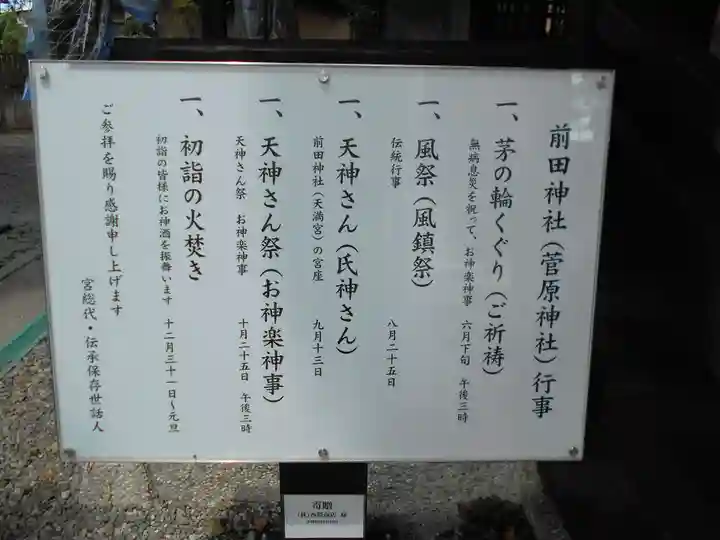 前田神社（菅原神社）行事
一、茅の輪くぐり（ご祈祷）
無病息災を祝って、お神楽神事　六月下旬　午後三時
一、風祭（風鎮祭）
伝統行事　八月二十五日
一、天神さん（氏神さん）
前田神社（天満宮）の宮座　九月十三日
一、天神さん祭（お神楽神事）
天神さん祭　お神楽神事　十月二十五日　午後三時
一、初詣の火焚き
初詣の皆様にお神酒を振舞います　十二月三十一日～元旦
ご参拝を賜り感謝申し上げます
宮総代・伝承保存世話人
寄贈